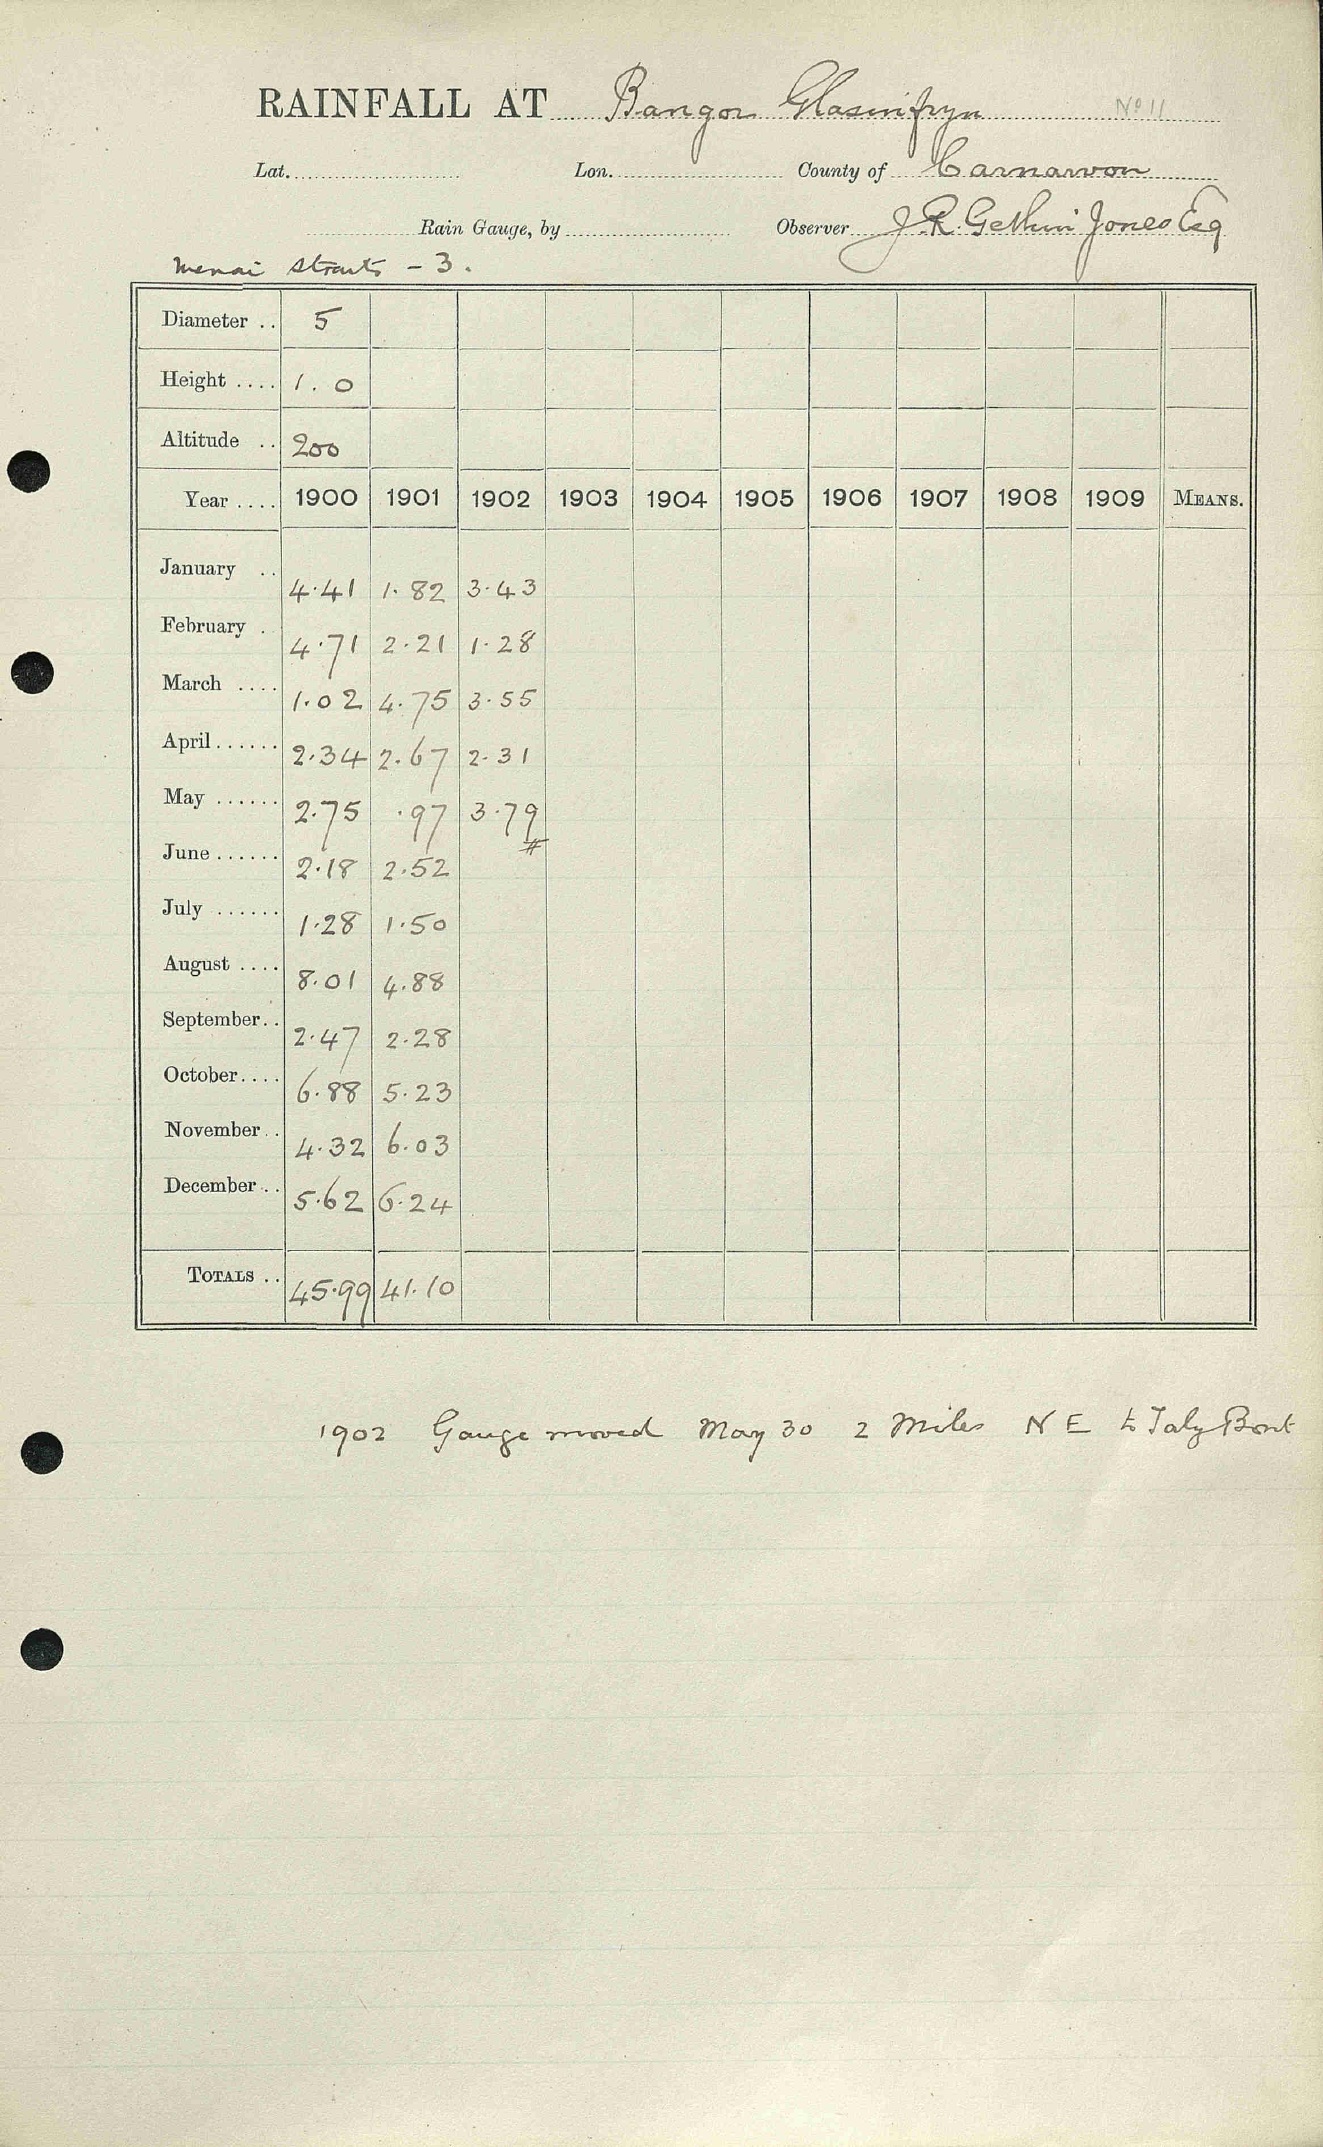 RAINFALL AT Bangor Glasinfryn No 11
Lat. Lon. County of Carnarvon
Rain Gauge, by Observer J. R. Gethin Jones Esq
Menai Straits - 3.
Diameter .. 5
Height .... 1.0
Altitude .. 200
Year .... 1900 1901 1902 1903 1904 1905 1906 1907 1908 1909 MEANS.
January .. 4.41 1.82 3.43
February . 4.71 2.21 1.28
March .... 1.02 4.75 3.55
April...... 2.34 2.67 2.31
May ...... 2.75 .97 3.79
#
June...... 2.18 2.52
July ...... 1.28 1.50
August .... 8.01 4.88
September.. 2.47 2.28
October.... 6.88 5.23
November.. 4.32 6.03
December.. 5.62 6.24
TOTALS .. 45.99 41.10
1902 Gauge moved May 30 2 Miles N E to Taly Bont